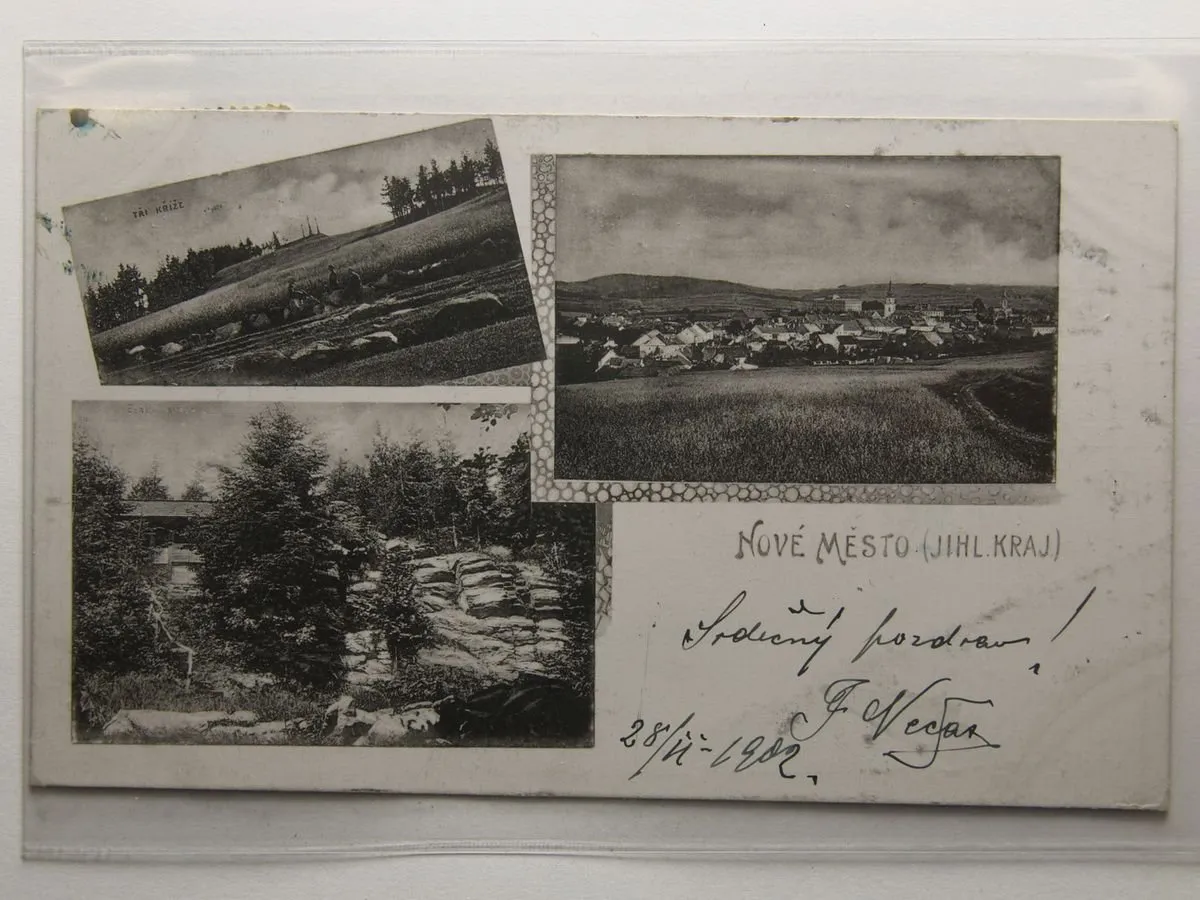 TŘI KŘÍŽE
NOVÉ MĚSTO (JIHL. KRAJ)
Srdečný pozdrav!
F Nečas
28/II-1902.